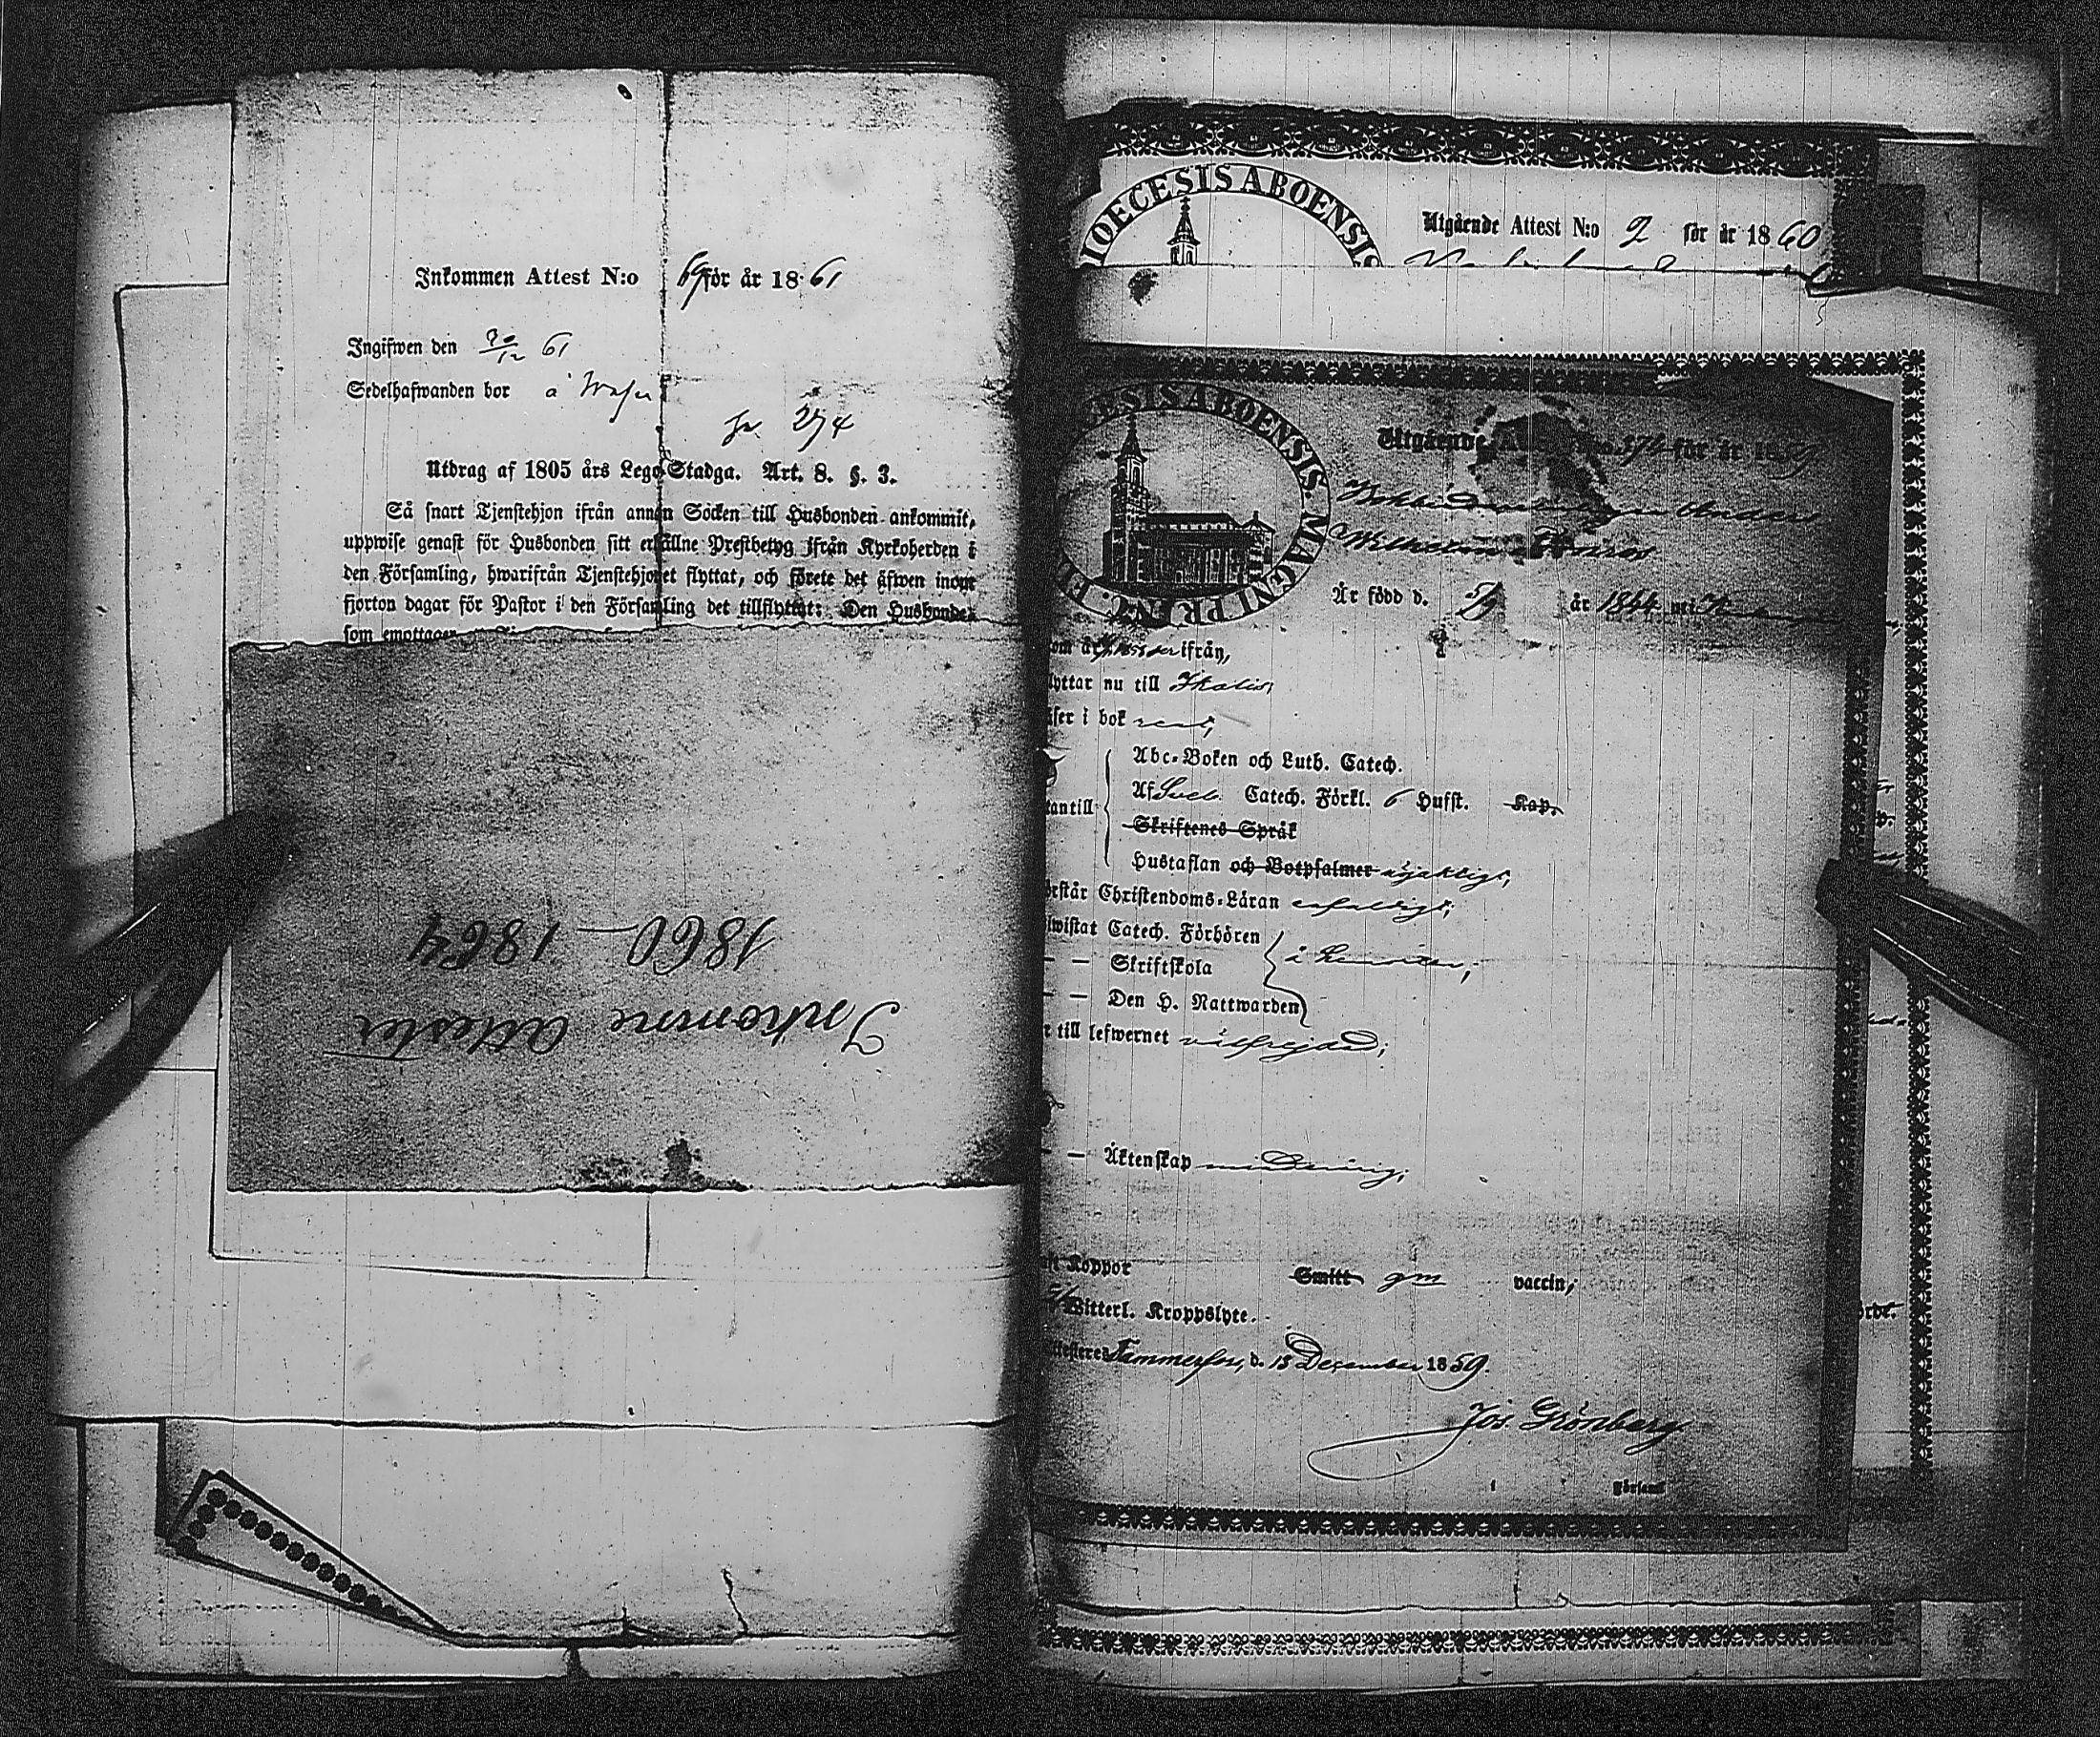 Inkommen Attest N:o 69 för år 1861
Ingifwen den 30/12 61
Sedelhafwanden bor å
274
Utdrag af 1805 års Lego-Stadga. Art. 8. §. 3.
Så snart Tjenstehjon ifrån annan Socken till Husbonden ankommit,
uppwise genast för Husbonden sitt erhållne Prestbetyg ifrån Kyrkoherden i
den Församling, hwarifrån Tjenstehjonet flyttat, och förete det äfwen inom
fjorton dagar för Pastor i den Församling det tillflyttat: Den Husbonde
som emottager
Inkomne Attester
1860–1864
DIOECESIS ABOENSIS
Utgående Attest N:o 2 för år 1860
ECESIS ABOENSIS. MAGNI PRINC. F
Utgående 374 för år 1859
Anders
Wilhelm
Är född d. år 1844
ifrån,
flyttar nu till Ikalis,
läser i bok rent,
Abc-Boken och Luth. Catech.
utantill Af Sveb. Catech. Förkl. 6 Hufst. Kap.
Skriftenes Språk
Hustaflan och Botpsalmer nöjaktigt,
förstår Christendoms-Läran enfaldigt,
bewistat Catech. Förhören
— — Skriftskola
— — Den H. Nattwarden
är till lefwernet välfrejdad;
— — Äktenskap minderårig;
haft Koppor Smitt gm vaccin,
Witterl. Kroppslyte.
Attesteres Tammerfors, d. 15 December 1859.
Jos. Grönberg
i Församl.